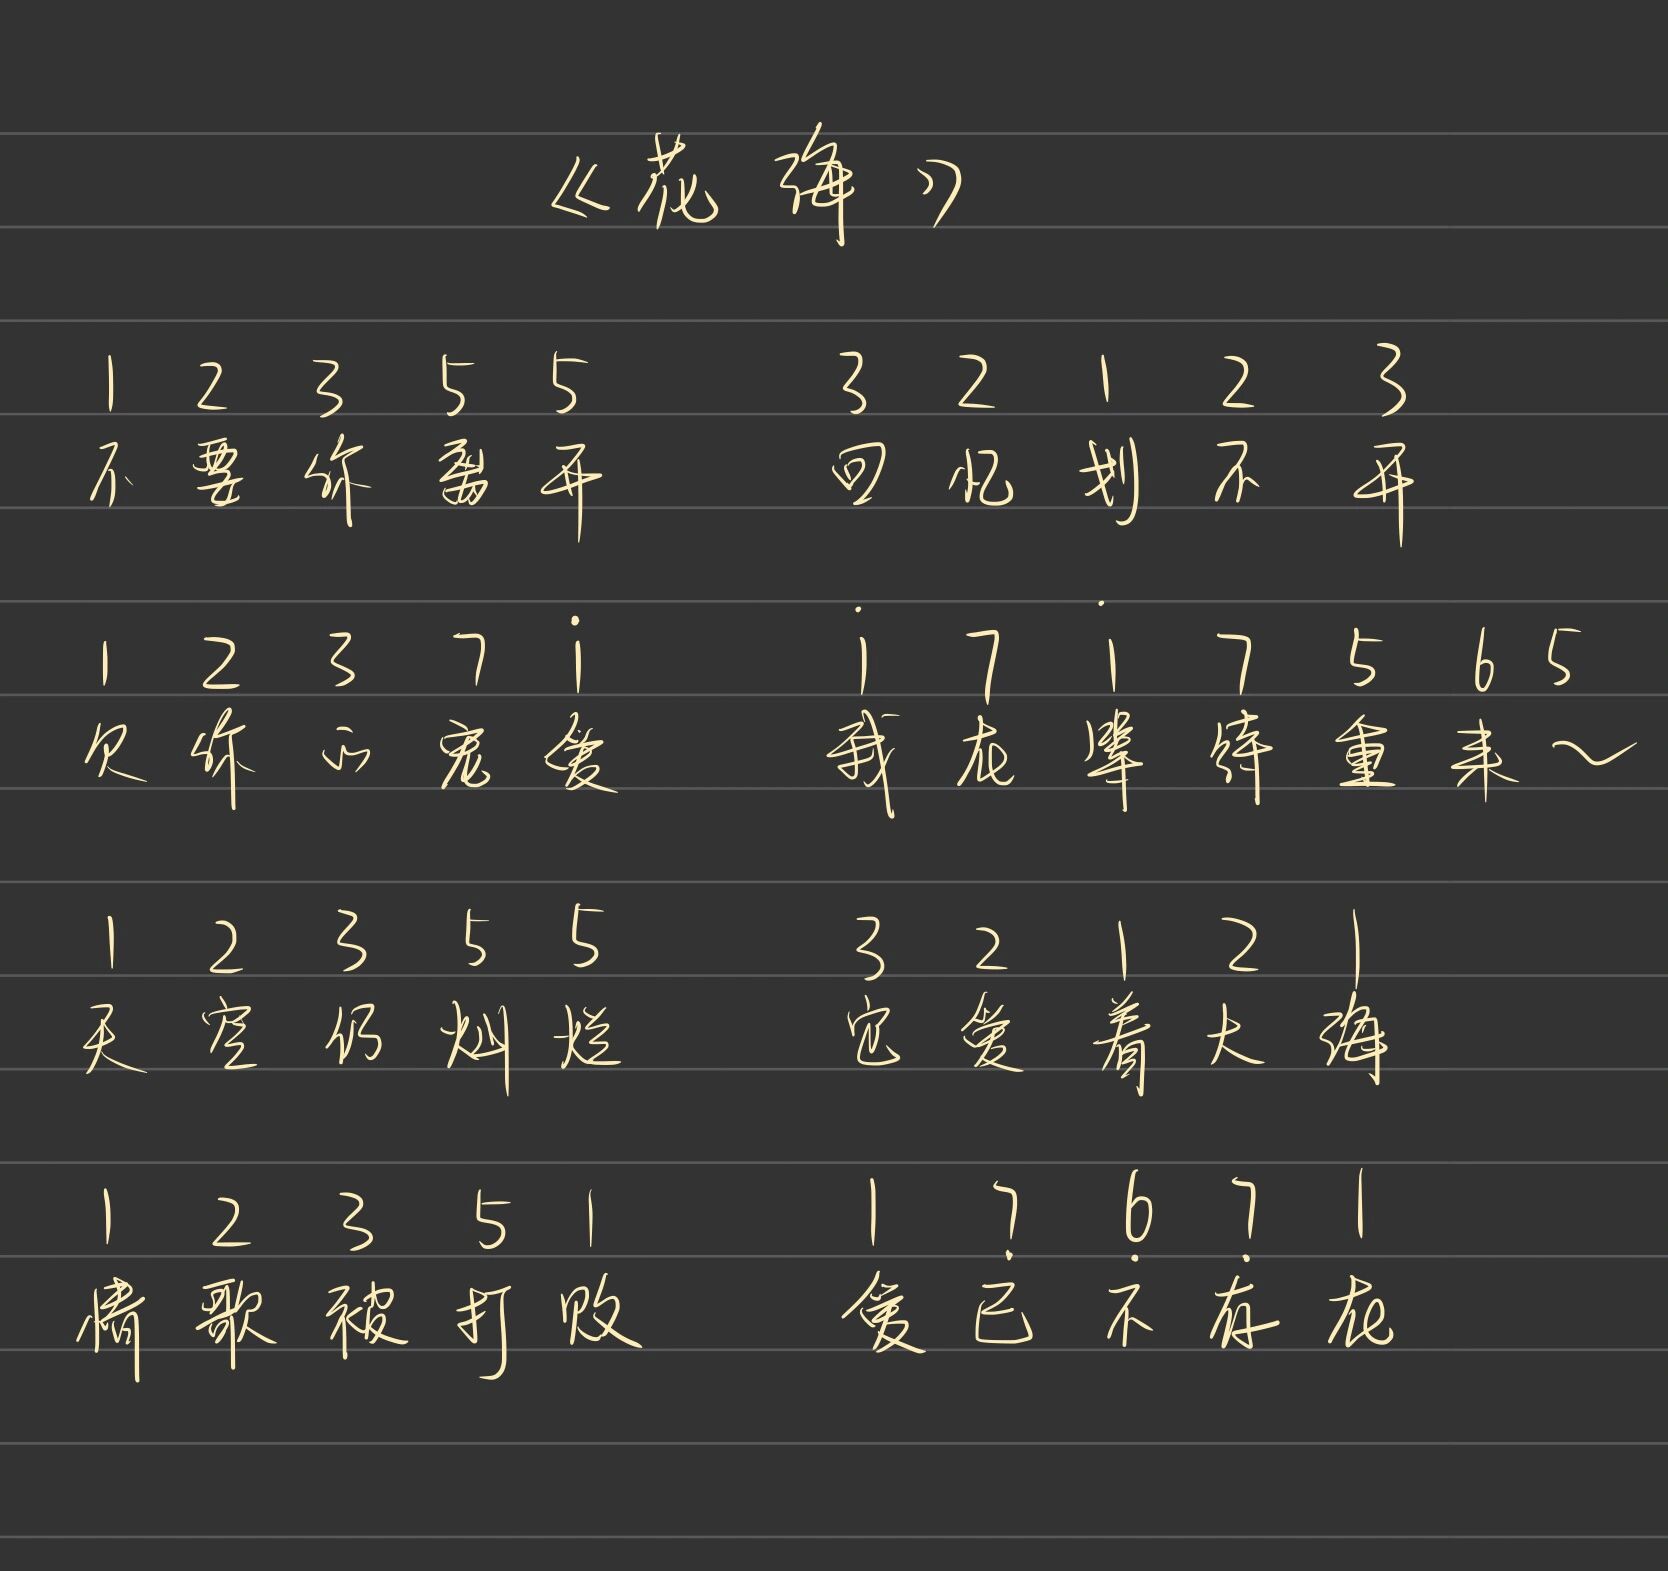 《花海》
1 2 3 5 5 3 2 1 2 3
不要你离开 回忆划不开
1 2 3 7 i i̇ 7 i̇ 7 5 6 5
欠你的宠爱 我在等待重来～
1 2 3 5 5 3 2 1 2 1
天空仍灿烂 它爱着大海
1 2 3 5 1 1 7̣ 6̣ 7̣ 1
情歌被打败 爱已不存在